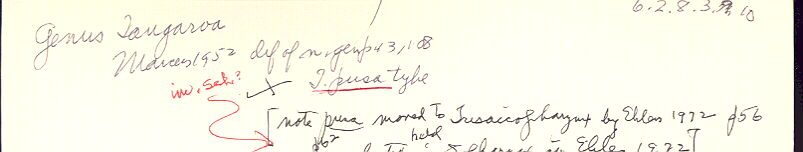 6.2.8.3. 10
Genus Tangaroa
Marcus 1952 def of n. gen p 43, 108
inv. sek?
T. pusa type
[note pusa moved to Trisaccopharynx by Ehlers 1972 p 56
in Ehlers 1972]